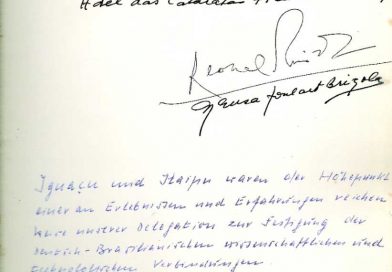 Hotel das Cataratas
Leonel Brizola
Neusa Goulart Brizola
Iguaçu und Itaipu waren der Höhepunkt
einer an Erlebnissen und Erfahrungen reichen
Reise unsrer Delegation zur Festigung der
Deutsch-Brasilianischen wissenschaftlichen und
technologischen Verbindungen